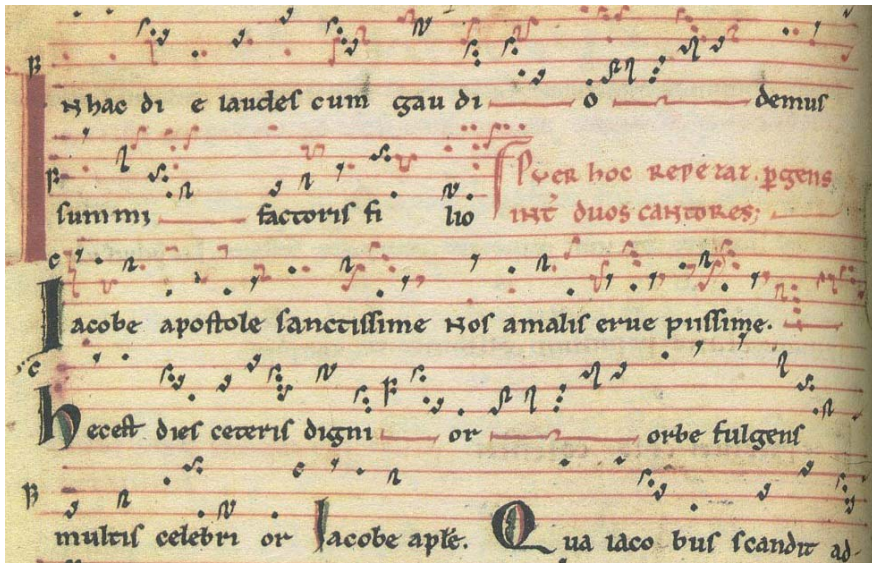 IN hac di e laudes cum gau di o demus
summi factoris fi lio Puer hoc repetat pergens
int duos cantores;
Iacobe apostole sanctissime nos a malis erue piissime.
Hec est dies ceteris digni or orbe fulgens
multis celebri or Iacobe aple. Qua iaco bus scandit ad-